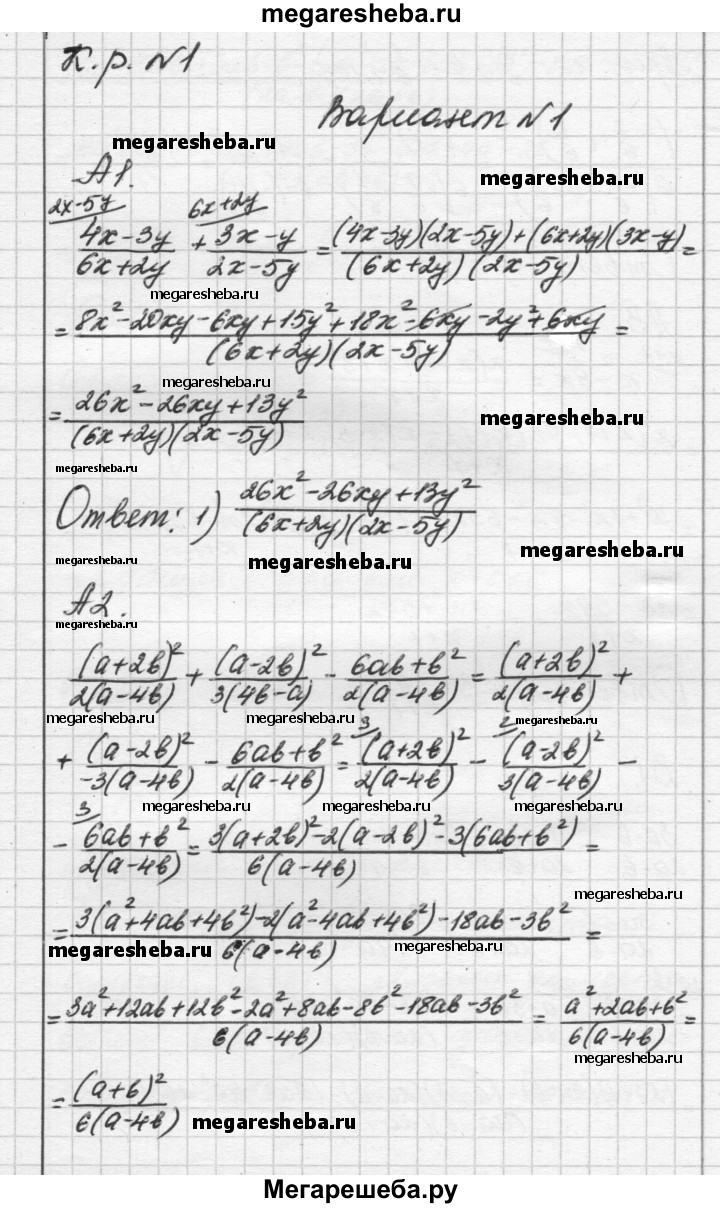 megaresheba.ru
К.р. №1
Вариант №1
megaresheba.ru
А1.
megaresheba.ru
2x-5y 6x+2y
(4x-3y)/(6x+2y) + (3x-y)/(2x-5y) = ((4x-3y)(2x-5y)+(6x+2y)(3x-y))/((6x+2y)(2x-5y)) =
megaresheba.ru
= (8x²-20xy-6xy+15y²+18x²-6xy-2y²+6xy)/((6x+2y)(2x-5y)) =
megaresheba.ru
= (26x²-26xy+13y²)/((6x+2y)(2x-5y))
megaresheba.ru
megaresheba.ru
Ответ: 1) (26x²-26xy+13y²)/((6x+2y)(2x-5y))
megaresheba.ru
megaresheba.ru
megaresheba.ru
А2.
megaresheba.ru
(a+2b)²/(2(a-4b)) + (a-2b)²/(3(4b-a)) - (6ab+b²)/(2(a-4b)) = (a+2b)²/(2(a-4b)) +
megaresheba.ru megaresheba.ru megaresheba.ru
3 2
+ (a-2b)²/(-3(a-4b)) - (6ab+b²)/(2(a-4b)) = (a+2b)²/(2(a-4b)) - (a-2b)²/(3(a-4b)) -
megaresheba.ru megaresheba.ru
3
- (6ab+b²)/(2(a-4b)) = (3(a+2b)²-2(a-2b)²-3(6ab+b²))/(6(a-4b)) =
megaresheba.ru
= (3(a²+4ab+4b²)-2(a²-4ab+4b²)-18ab-3b²)/(6(a-4b)) =
megaresheba.ru megaresheba.ru
= (3a²+12ab+12b²-2a²+8ab-8b²-18ab-3b²)/(6(a-4b)) = (a²+2ab+b²)/(6(a-4b)) =
megaresheba.ru
= (a+b)²/(6(a-4b))
megaresheba.ru
Мегарешеба.ру